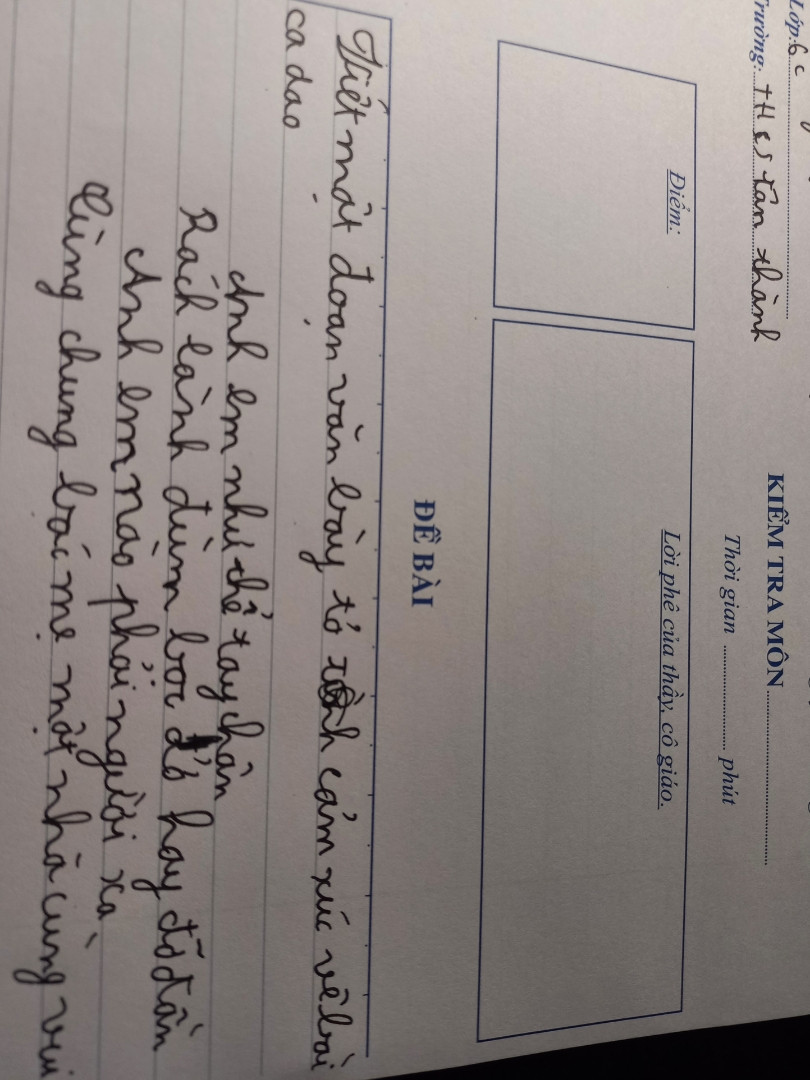 Lớp: 6c
Trường: THCS tân thành
KIỂM TRA MÔN
Thời gian phút
Điểm:
Lời phê của thầy, cô giáo.
ĐỀ BÀI
Viết một đoạn văn bày tỏ cảm xúc về bài
ca dao
Anh em như thể tay chân
Rách lành đùm bọc đỏ hay đỡ đần
Anh em nào phải người xa
Cùng chung bác mẹ một nhà cùng vui